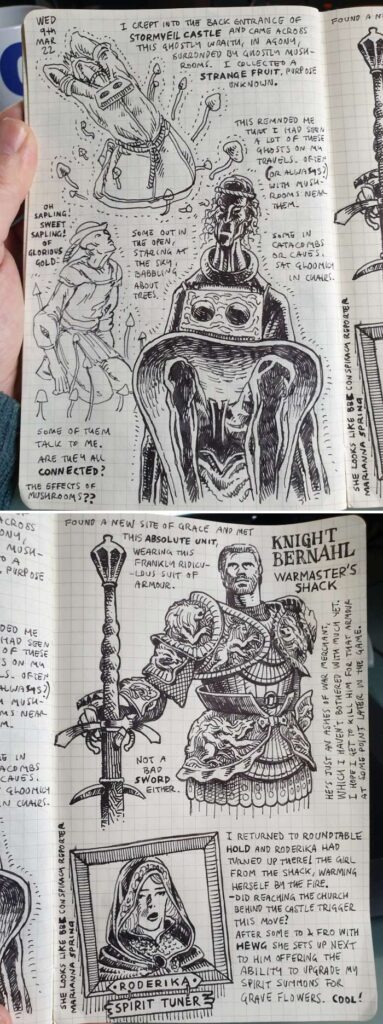 WED
9TH
MAR
22
I CREPT INTO THE BACK ENTRANCE OF
STORMVEIL CASTLE AND CAME ACROSS
THIS GHOSTLY WRAITH, IN AGONY,
SURRONDED BY GHOSTLY MUSH-
ROOMS. I COLLECTED A
STRANGE FRUIT, PURPOSE
UNKNOWN.
THIS REMINDED ME
THAT I HAD SEEN
A LOT OF THESE
GHOSTS ON MY
TRAVELS. OFTEN
(OR ALWAYS?)
WITH MUSH-
ROOMS NEAR
THEM.
OH
SAPLING!
SWEET
SAPLING!
OF
GLORIOUS
GOLD.
SOME OUT IN
THE OPEN,
STARING AT
THE SKY,
BABBLING
ABOUT
TREES.
SOME IN
CATACOMBS
OR CAVES.
SAT GLOOMILY
IN CHAIRS.
SOME OF THEM
TALK TO ME.
ARE THEY ALL
CONNECTED?
THE EFFECTS OF
MUSHROOMS??
FOUND A N
SHE LOOKS LIKE BBC CONSPIRACY REPORTER
MARIANNA SPRING
ACROSS
ONY,
MUSH-
D A
PURPOSE
DED ME
HAD SEEN
OF THESE
ON MY
OFTEN
ALWAYS?)
MUSH-
NEAR
EM.
E IN
TACOMBS
CAVES.
GLOOMILY
IN CHAIRS.
FOUND A NEW SITE OF GRACE AND MET
THIS ABSOLUTE UNIT,
WEARING THIS
FRANKLY RIDICU-
-LOUS SUIT OF
ARMOUR.
KNIGHT
BERNAHL
WARMASTER'S
SHACK
HE'S JUST AN ASHES OF WAR MERCHANT,
WHICH I HAVEN'T BOTHERED WITH MUCH YET.
I HOPE I GET TO KILL HIM FOR THAT ARMOUR
AT SOME POINT LATER IN THE GAME.
NOT A
BAD
SWORD
EITHER.
SHE LOOKS LIKE BBC CONSPIRACY REPORTER
MARIANNA SPRING
RODERIKA
SPIRIT TUNER
I RETURNED TO ROUNDTABLE
HOLD AND RODERIKA HAD
TURNED UP THERE! THE GIRL
FROM THE SHACK, WARMING
HERSELF BY THE FIRE.
-DID REACHING THE CHURCH
BEHIND THE CASTLE TRIGGER
THIS MOVE?
AFTER SOME TO & FRO WITH
HEWG SHE SETS UP NEXT
TO HIM OFFERING THE
ABILITY TO UPGRADE MY
SPIRIT SUMMONS FOR
GRAVE FLOWERS. COOL!